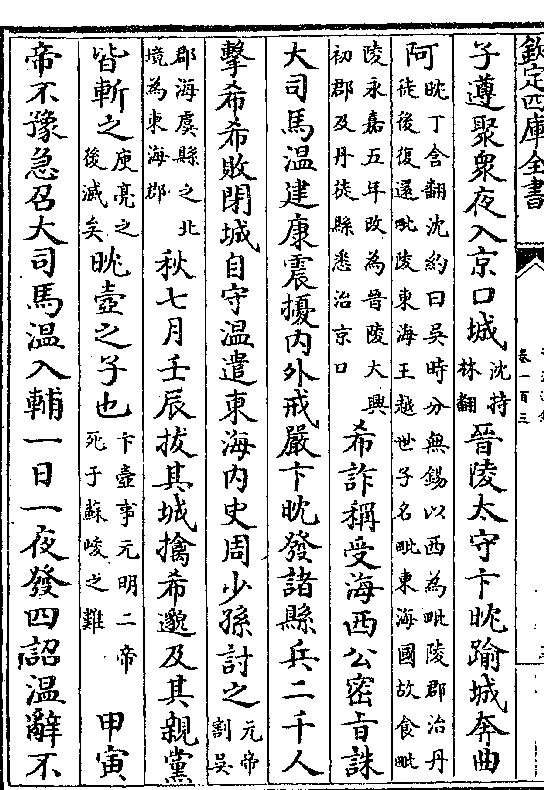 欽定四庫全書
卷一百三
子遵聚衆夜入京口城沈持林翻晉陵太守卞眈踰城奔曲
阿眈丁含翻沈約曰吳時分無錫以西為毗陵郡治丹徒後復還毗陵東海王越世子名毗東海國故食毗
陵永嘉五年改為晉陵大興初郡及丹徒縣悉治京口希詐稱受海西公密旨誅
大司馬温建康震擾内外戒嚴卞眈發諸縣兵二千人
擊希希敗閉城自守温遣東海内史周少孫討之元帝割吳
郡海虞縣之北境為東海郡秋七月壬辰拔其城擒希邈及其親黨
皆斬之庾亮之後滅矣眈壼之子也卞壼事元明二帝死于蘇峻之難甲寅
帝不豫急召大司馬温入輔一日一夜發四詔温辭不